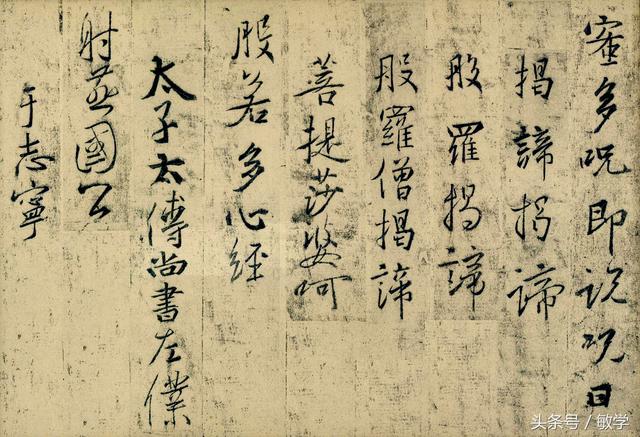 蜜多呪即說呪曰
揭諦揭諦
般羅揭諦
般羅僧揭諦
菩提莎婆呵
般若多心經
太子太傅尚書左僕
射燕國公
于志寧
头条号 / 敏学